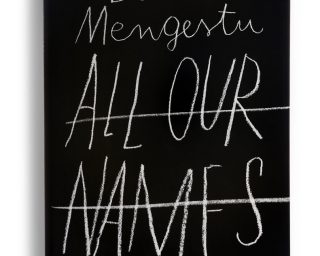 Mengestu
ALL OUR
NAMES